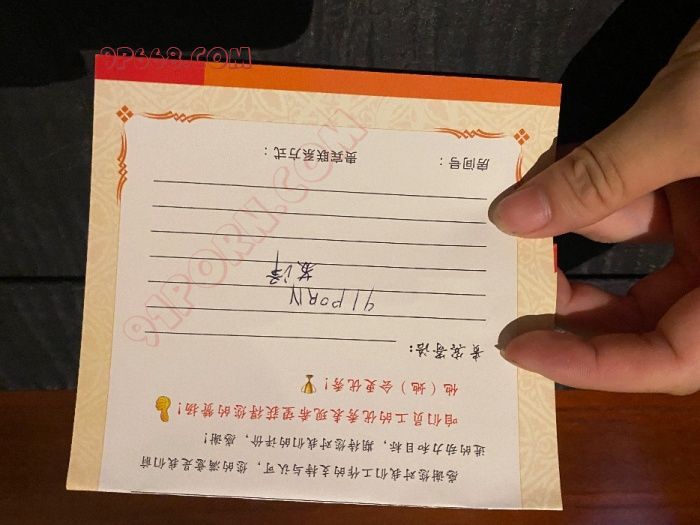 感谢您对我们工作的支持与认可，您的满意是我们前
进的动力和目标，期待您对我们的评价，感谢！
咱们员工的优秀表现希望获得您的赞扬！
他（她）会更优秀！
贵宾寄语：
91PORN
房间号： 贵宾联系方式：
9P668.COM
91PORN.COM